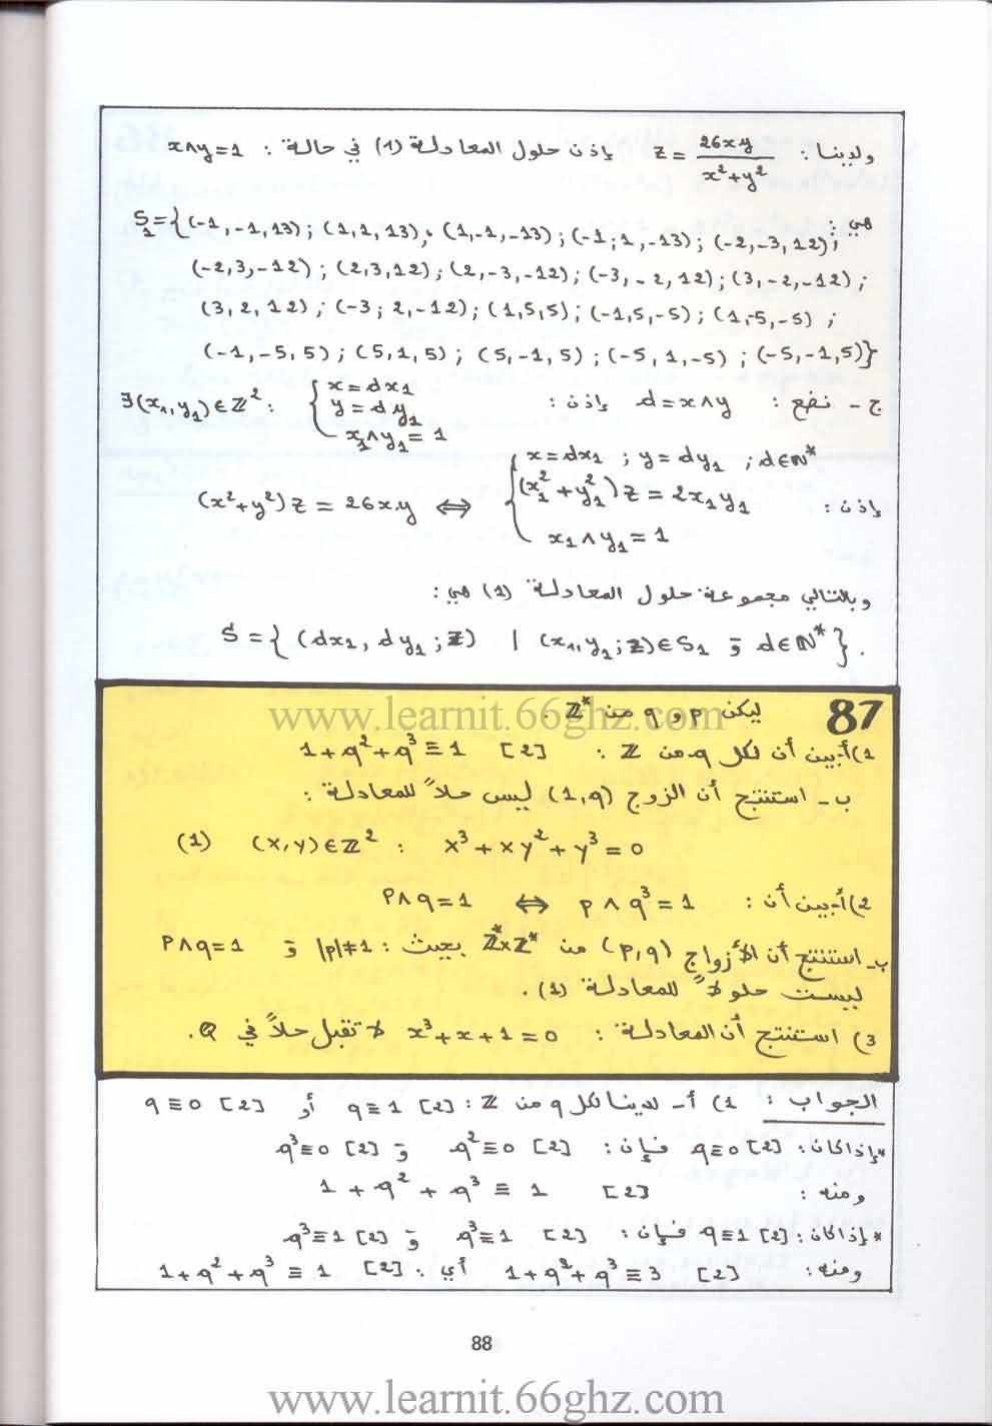 ولدينا : z = 26xy / x²+y² إذن حلول المعادلة (1) في حالة : x∧y=1
هي : S₁={(-1,-1,13); (1,1,13); (1,-1,-13); (-1;1,-13); (-2,-3,12);
(-2,3,-12); (2,3,12); (2,-3,-12); (-3,-2,12); (3,-2,-12);
(3,2,12); (-3;2,-12); (1,5,5); (-1,5,-5); (1,-5,-5);
(-1,-5,5); (5,1,5); (5,-1,5); (-5,1,-5); (-5,-1,5)}
ج - نضع : d=x∧y إذن : ∃(x₁,y₁)∈ℤ² : { x=dx₁
y=dy₁
x₁∧y₁=1
x=dx₁ ; y=dy₁ ; d∈ℕ*
إذن : (x²+y²)z = 26xy ⇔ { (x₁²+y₁²)z = 2x₁y₁
x₁∧y₁=1
وبالتالي مجموعة حلول المعادلة (1) هي :
S={(dx₁, dy₁; z) | (x₁,y₁;z)∈S₁ و d∈ℕ*}.
87 ليكن p و q من ℤ*
www.learnit.66ghz.com
1) أ- بين أن لكل q من ℤ : 1+q²+q³≡1 [2]
ب - استنتج أن الزوج (1,q) ليس حلاً للمعادلة :
(1) (x,y)∈ℤ² : x³+xy²+y³=0
2) أ- بين أن : p∧q³=1 ⇔ p∧q=1
ب- استنتج أن الأزواج (p,q) من ℤ*×ℤ* بحيث : |p|≠1 و p∧q=1
ليست حلولاً للمعادلة (1).
3) استنتج أن المعادلة : x³+x+1=0 لا تقبل حلاً في ℚ.
الجواب : 1) أ- لدينا لكل q من ℤ : q≡1 [2] أو q≡0 [2]
*إذا كان : q≡0 [2] فإن : q²≡0 [2] و q³≡0 [2]
ومنه : 1+q²+q³≡1 [2]
*إذا كان : q≡1 [2] فإن : q³≡1 [2] و q³≡1 [2]
ومنه : 1+q²+q³≡3 [2] أي : 1+q²+q³≡1 [2]
88
www.learnit.66ghz.com